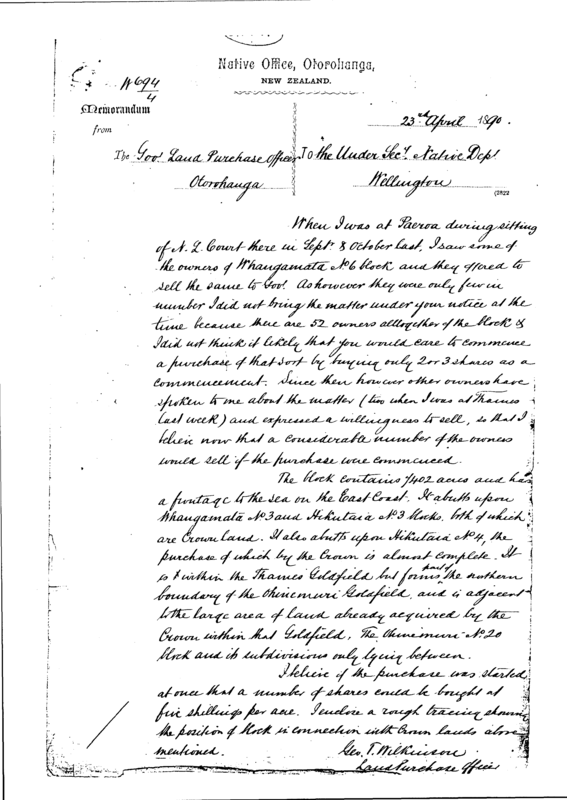 Native Office, Otorohanga,
NEW ZEALAND.
N 694/4
Memorandum
23rd April 1890.
from
The Govt Land Purchase Officer To the Under Secy. Native Dept
Otorohanga Wellington
When I was at Paeroa during sitting
of N. L. Court there in Septr & October last, I saw some of
the owners of Whangamata No 6 block and they offered to
sell the same to Govt. As however they were only few in
number I did not bring the matter under your notice at the
time because there are 52 owners alltogether of the block &
I did not think it likely that you would care to commence
a purchase of that sort by buying only 2 or 3 shares as a
commencement. Since then however other owners have
spoken to me about the matter (two when I was at Thames
last week) and expressed a willingness to sell, so that I
believe now that a considerable number of the owners
would sell if the purchase were commenced.
The block contains 7402 acres and has
a frontage to the sea on the East Coast. It abutts upon
Whangamata No 3 and Hikutaia No 3 blocks, both of which
are Crown land. It also abutts upon Hikutaia No 4, the
purchase of which by the Crown is almost complete. It
is within the Thames Goldfield but forms part of the northern
boundary of the Ohinemuri Goldfield, and is adjacent
to the large area of land already acquired by the
Crown within that Goldfield, The Ohinemuri No 20
block and its subdivisions only lying between.
I believe if the purchase was started
at once that a number of shares could be bought at
five shillings per acre. I enclose a rough tracing showing
the position of block in connection with Crown lands above
mentioned. Geo. T. Wilkinson
Land Purchase Officer